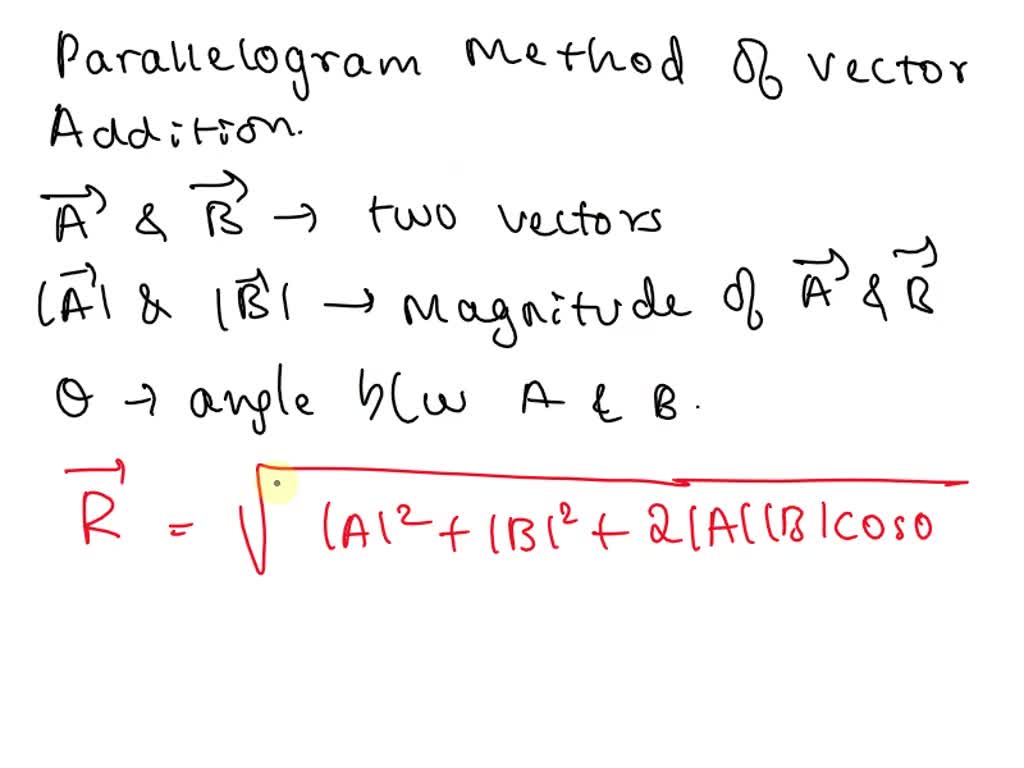 Parallelogram Method of vector
Addition.
A⃗ & B⃗ → two vectors
|A⃗| & |B⃗| → Magnitude of A⃗ & B⃗
θ → angle b/w A & B.
R⃗ = √|A|² + |B|² + 2|A||B|cosθ